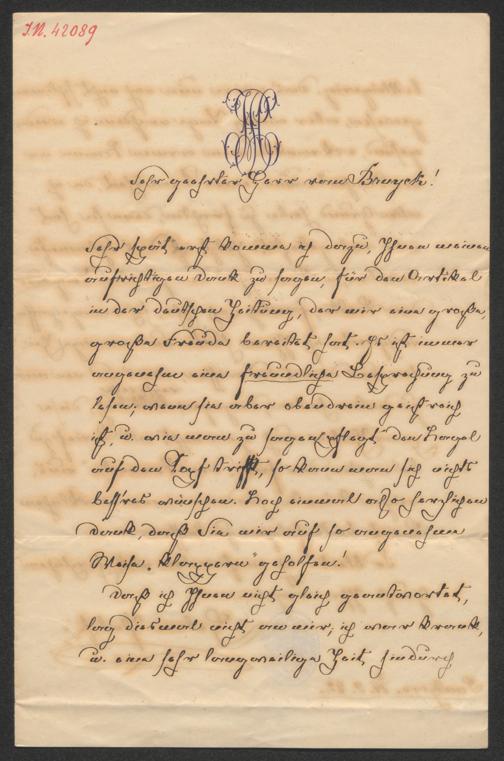 I.N. 42089
Sehr geehrter Herr van Bruyck!
Sehr spät erst komme ich dazu, Ihnen meinen
aufrichtigen Dank zu sagen, für den Artikel
in der deutschen Zeitung, der mir eine große,
große Freude bereitet hat. Es ist immer
angenehm eine freundliche Besprechung zu
lesen; wenn sie aber obendrein geistreich
ist, u. wie man zu sagen pflegt "den Nagel
auf den Kopf trifft", so kann man sich nichts
bess'res wünschen. Noch einmal also herzlichen
Dank, daß Sie mir auf so angenehme
Weise "klappern" geholfen!
Daß ich Ihnen nicht gleich geantwortet,
lag diesmal nicht an mir; ich war krank,
u. eine sehr langweilige Zeit hindurch